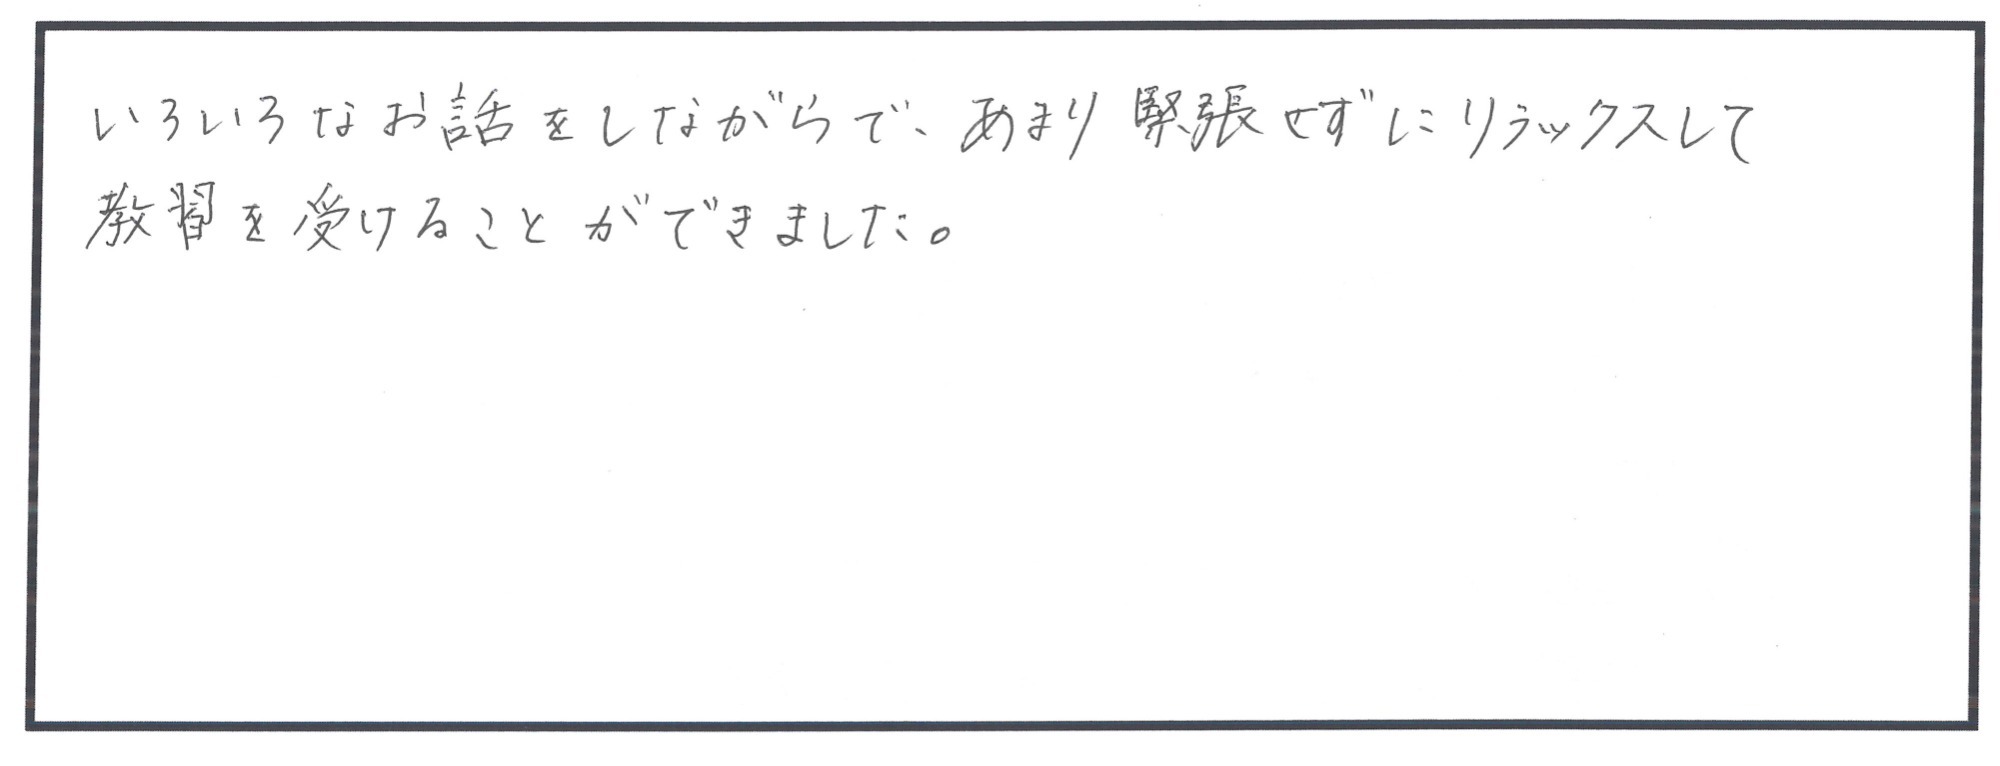 いろいろなお話をしながらで、あまり緊張せずにリラックスして
教習を受けることができました。